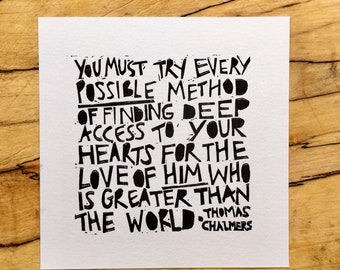 YOU MUST TRY EVERY
POSSIBLE METHOD
OF FINDING DEEP
ACCESS TO YOUR
HEARTS FOR THE
LOVE OF HIM WHO
IS GREATER THAN
THE WORLD • THOMAS
CHALMERS